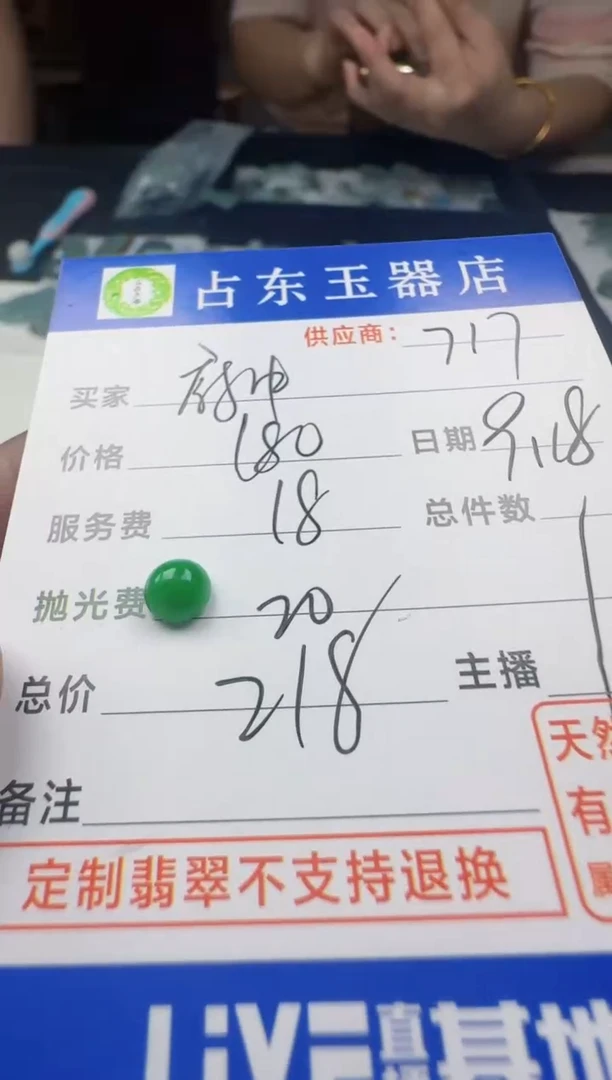 占东玉器店
供应商: 717
买家
价格 180 日期 9.18
服务费 18 总件数 1
抛光费 20
总价 218 主播
备注
天然
有
定制翡翠不支持退换
LIVE直播基地